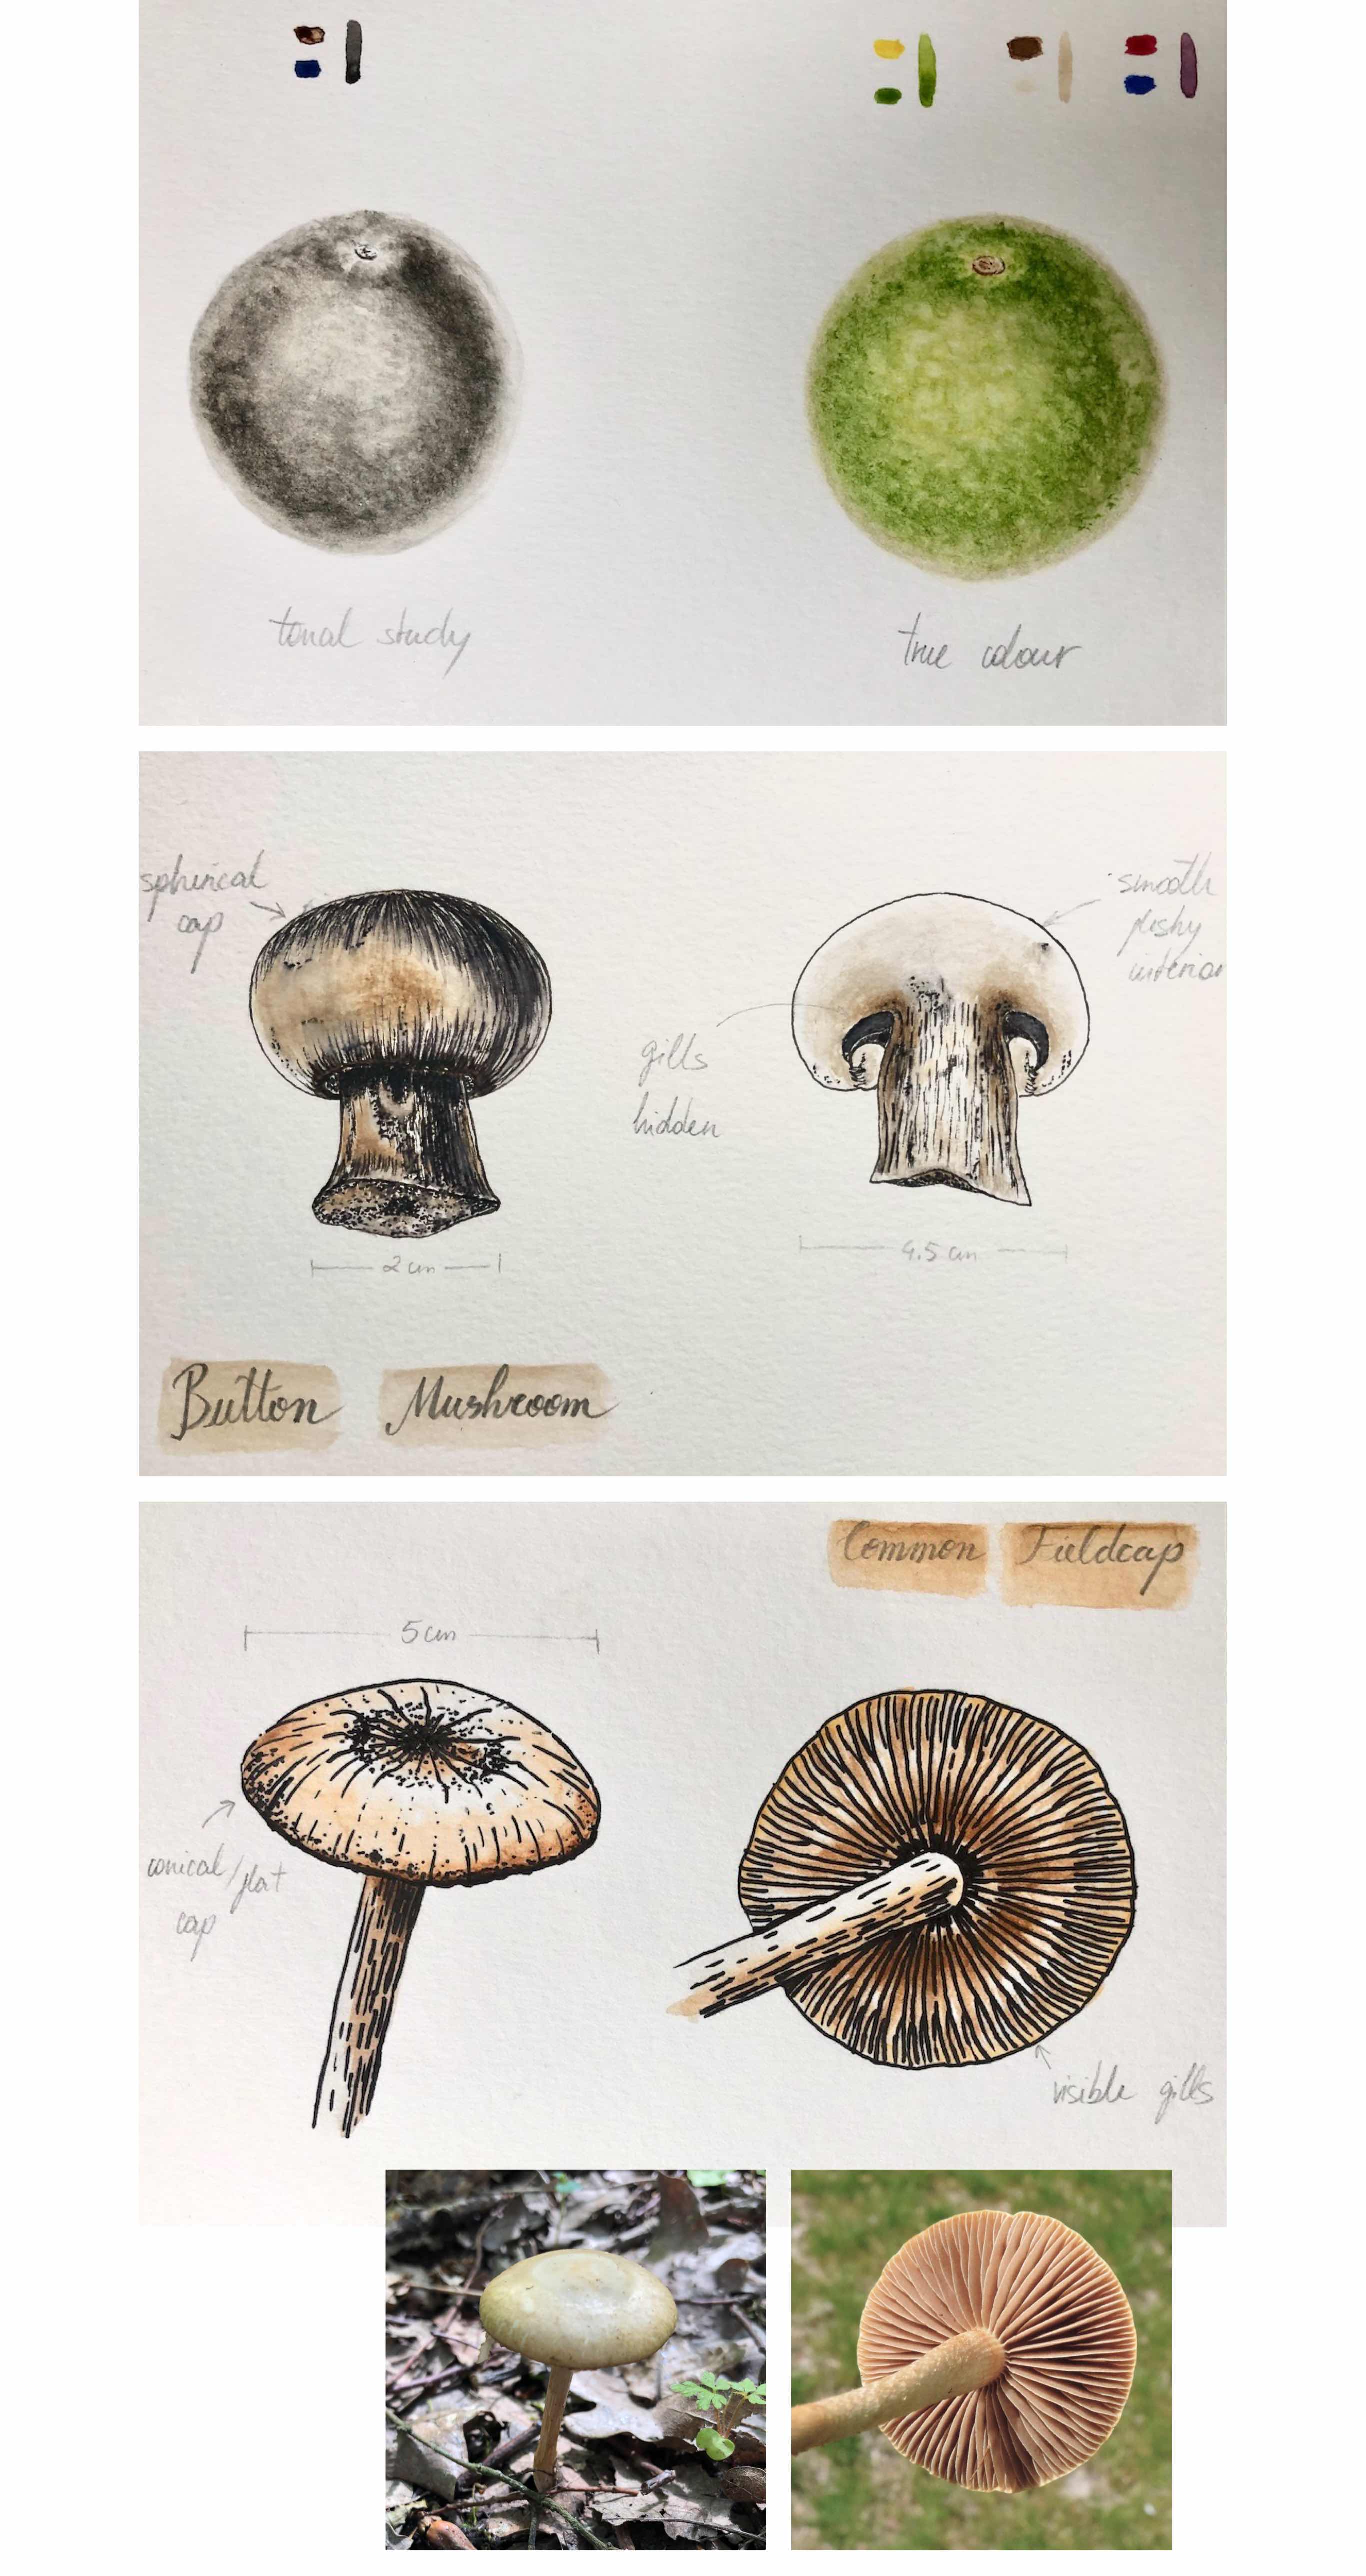 tonal study
true colour
spherical
cap
smooth
fleshy
interior
gills
hidden
2 cm
4.5 cm
Button Mushroom
Common Fieldcap
5 cm
conical/flat
cap
visible gills